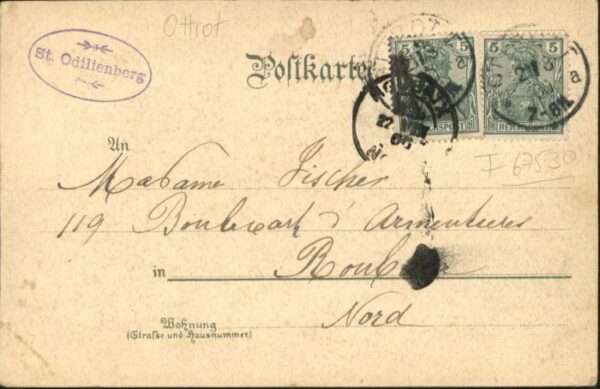 Ottrot
St. Odilienberg
Postkarte
5 5
5 5
7-8
a
An
Madame Fischer
119 Boulevart d'Armentieres
in
Nord
Wohnung
(Straße und Hausnummer)